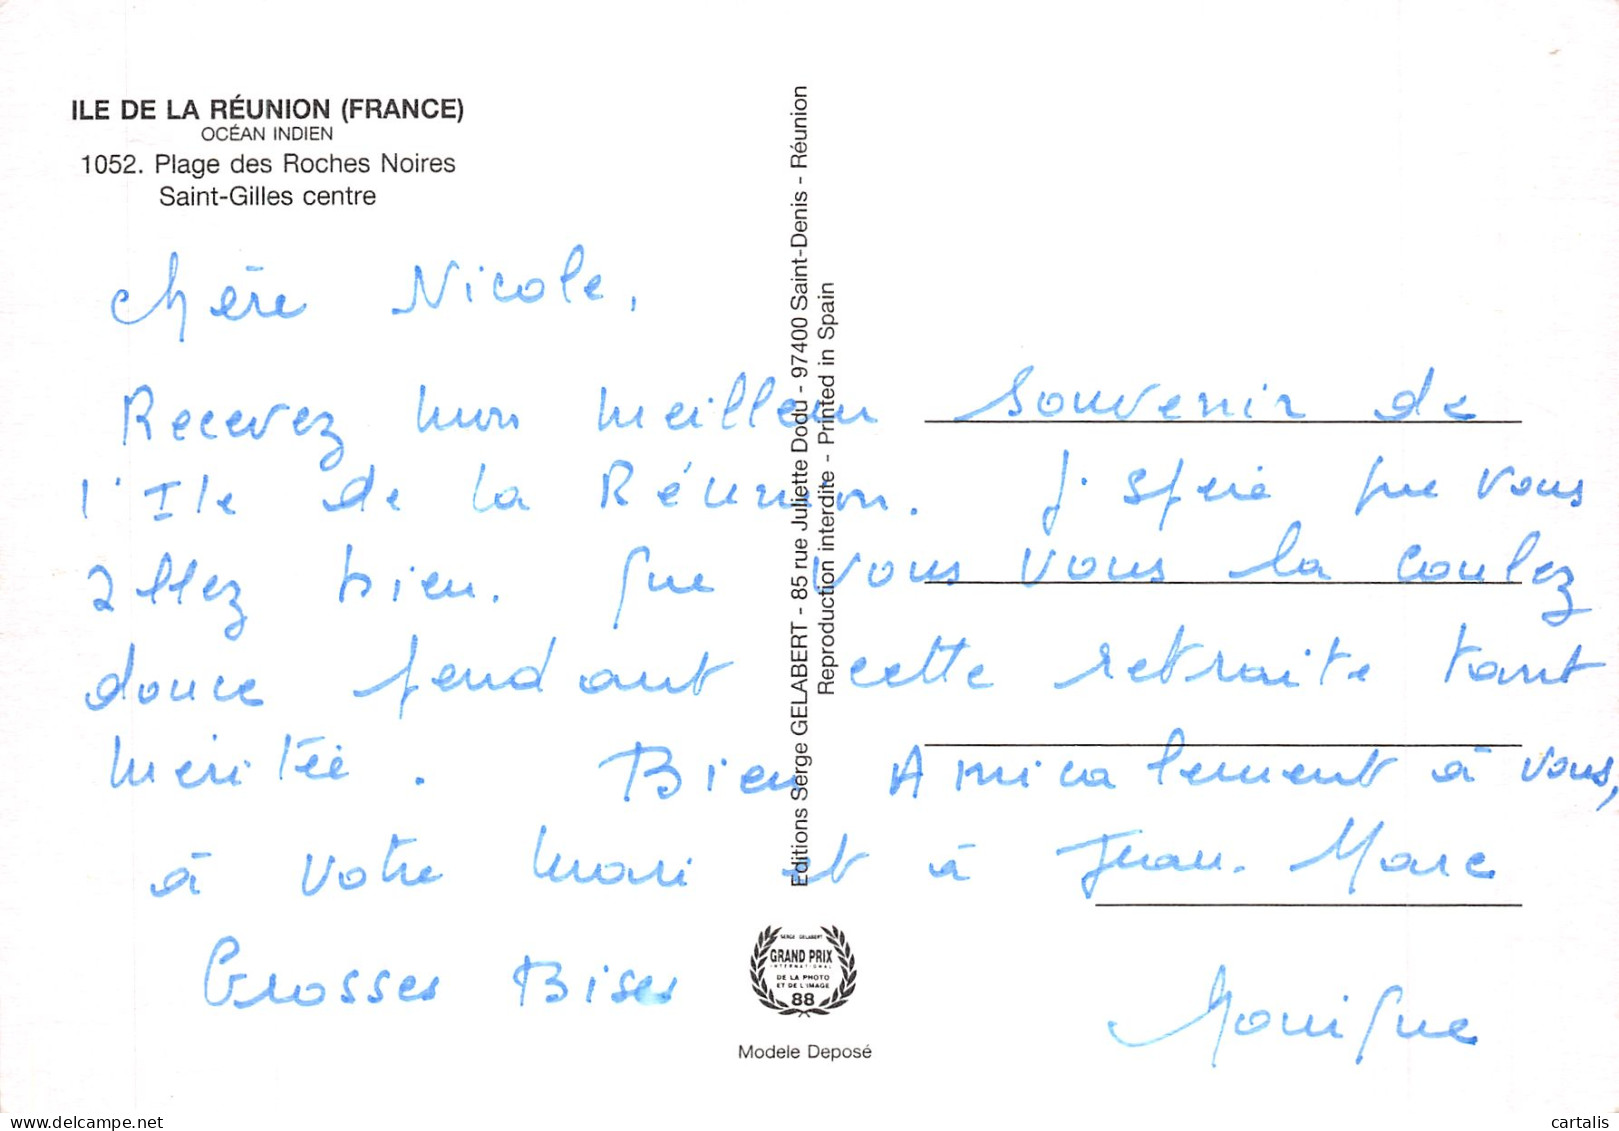 ILE DE LA RÉUNION (FRANCE)
OCÉAN INDIEN
1052. Plage des Roches Noires
Saint-Gilles centre
Chère Nicole,
Recevez mon meilleur souvenir de
l'Ile de la Réunion. J'espère que vous
allez bien. Que vous vous la coulez
douce pendant cette retraite tant
méritée. Bien Amicalement à vous,
à votre mari et à Jean-Marc
Grosses Bises
Monique
Editions Serge GELABERT - 85 rue Juliette Dodu - 97400 Saint-Denis - Réunion
Reproduction interdite - Printed in Spain
SERGE GELABERT
GRAND PRIX
INTERNATIONAL
DE LA PHOTO
ET DE L'IMAGE
88
Modele Deposé
cartalis